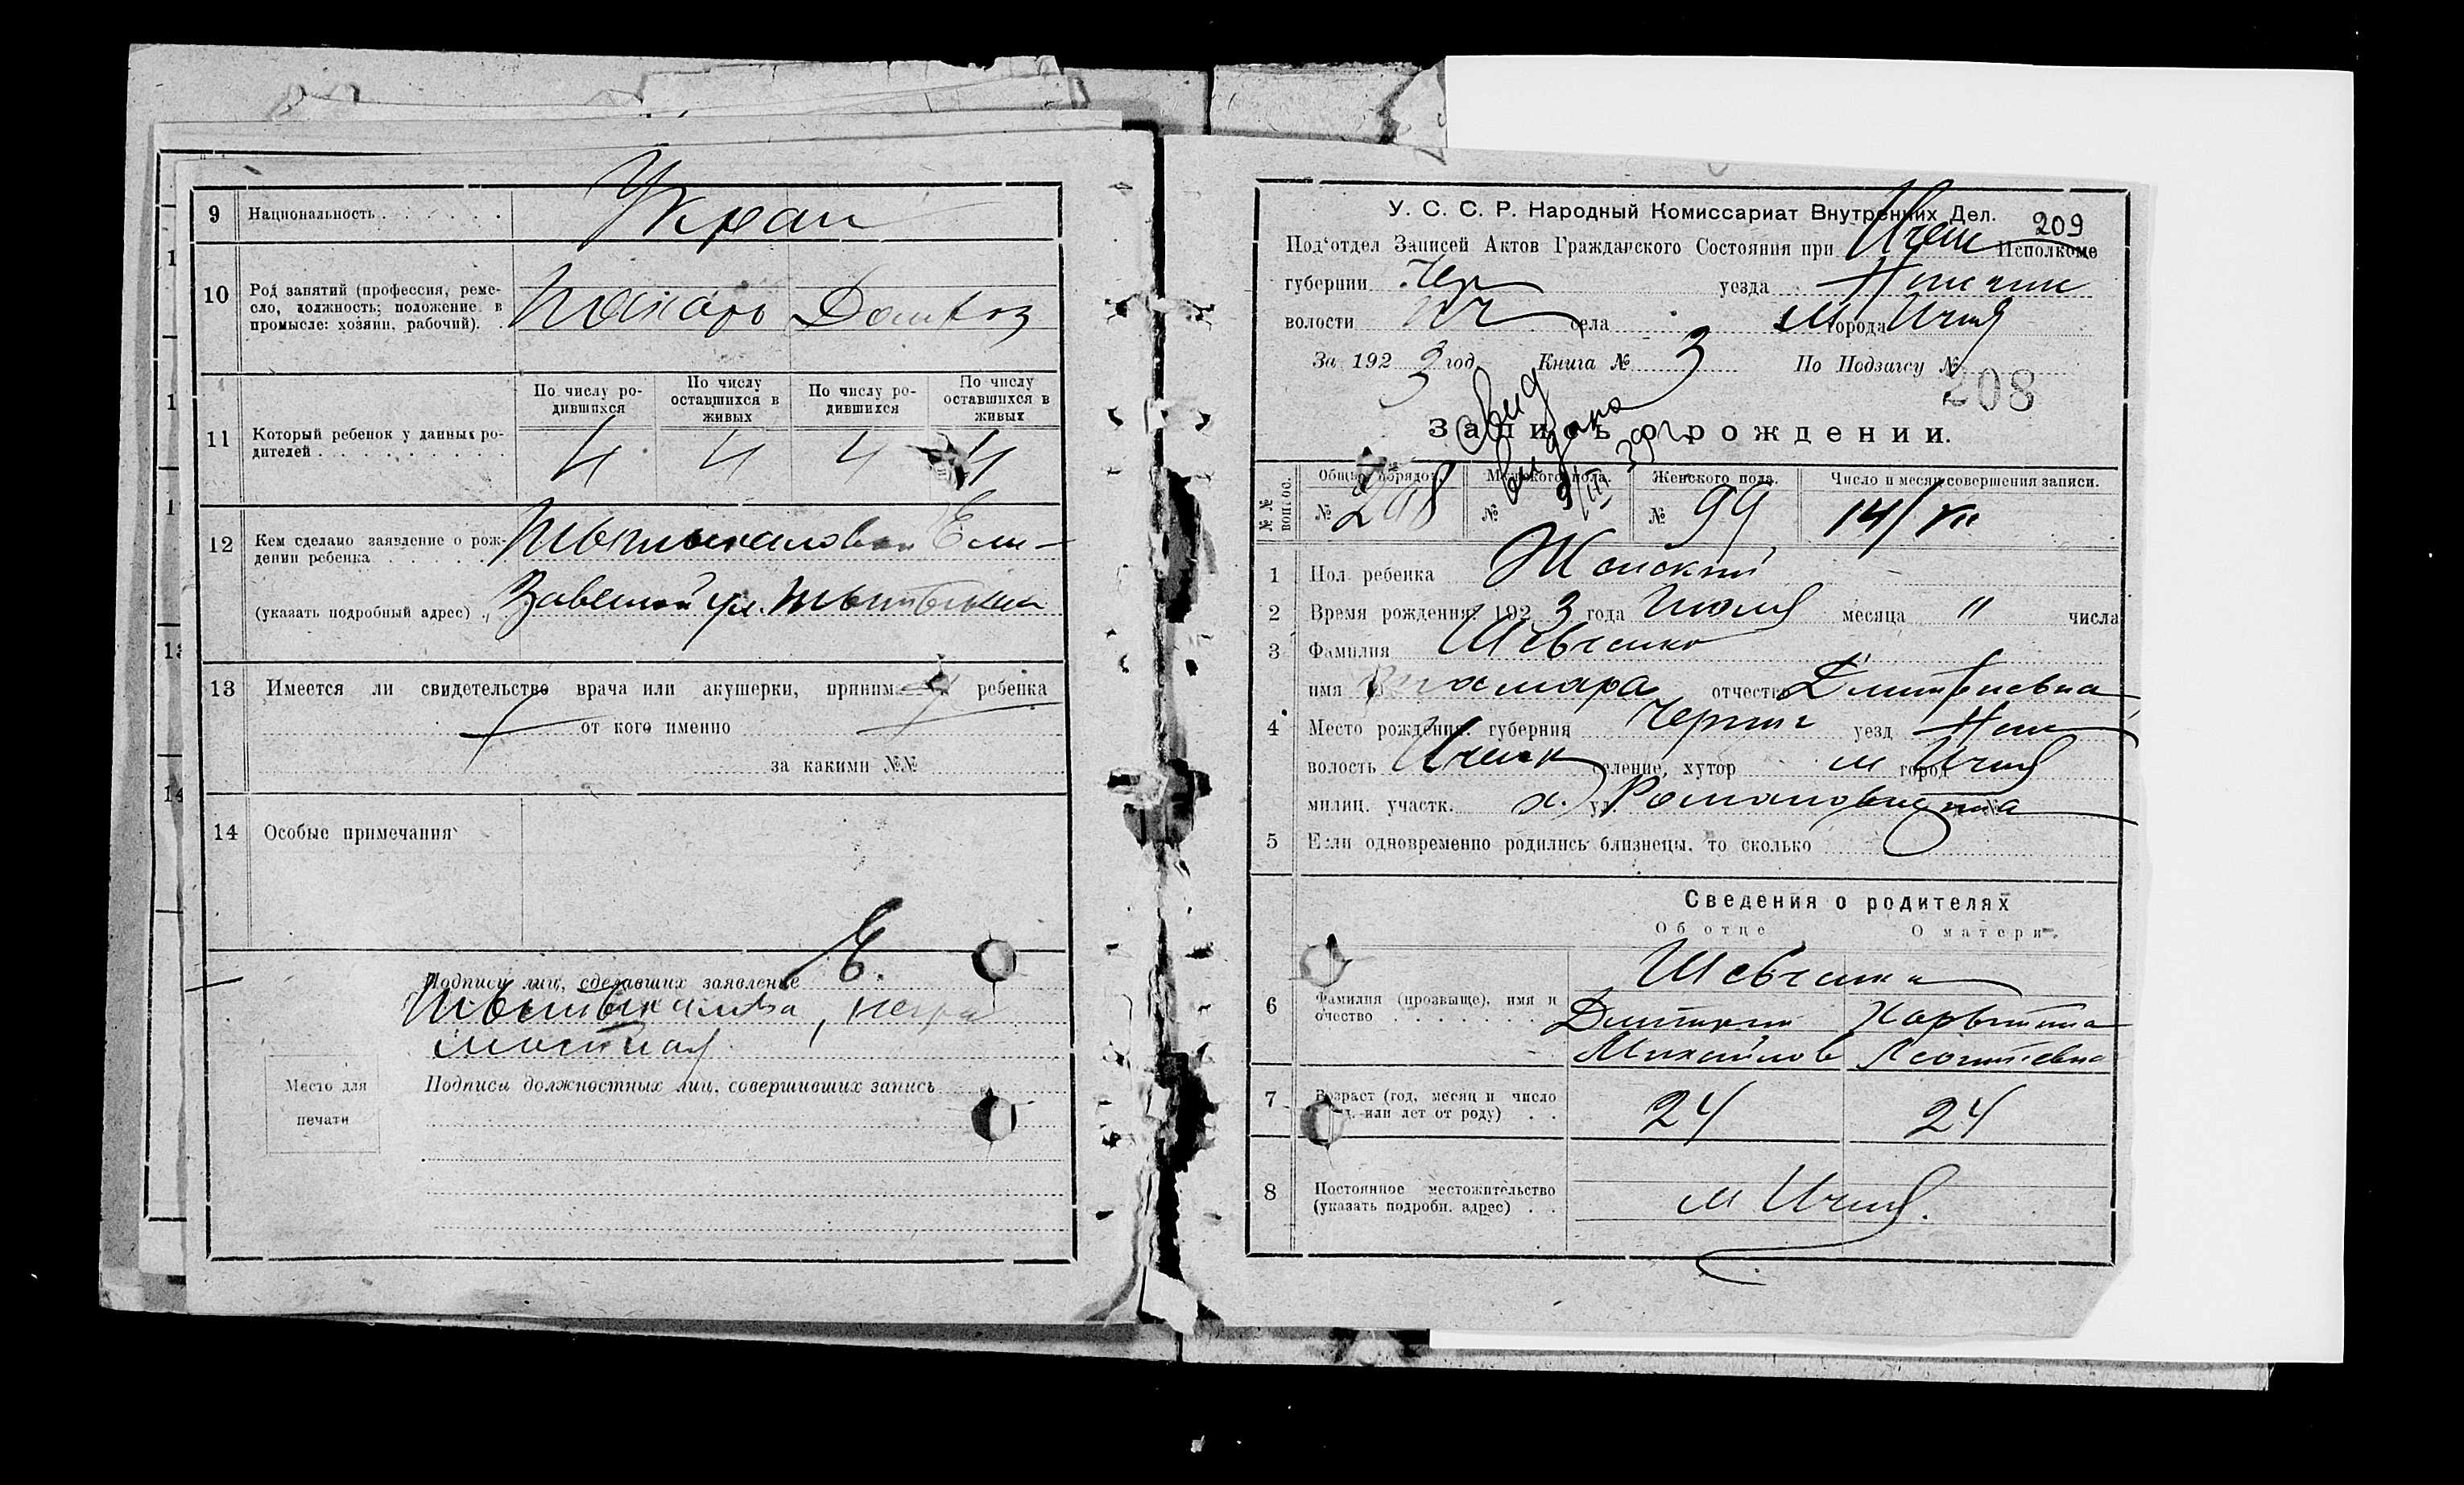 9 Национальность Укран
10 Род занятий (профессия, реме-
сло, должность; положение в
промысле: хозяин, рабочий).
Пахарь Домхоз
По числу ро-
дившихся
По числу
оставшихся в
живых
По числу ро-
дившихся
По числу
оставшихся в
живых
11 Который ребенок у данных ро-
дителей
4 4 4 4
12 Кем сделано заявление о рож-
дении ребенка
(указать подробный адрес)
13 Имеется ли свидетельство врача или акушерки, приним ребенка
от кого именно
за какими №№
14 Особые примечания
Подписи лиц, сделавших заявление
Место для
печати
Подписи должностных лиц, совершивших запись
У. С. С. Р. Народный Комиссариат Внутренних Дел. 209
Под'отдел Записей Актов Гражданского Состояния при Ичен Исполкоме
губернии Чер уезда Нежин
волости Ич села м города Ичня
За 1923 год Книга № 3 По Подзагсу №
208
Запись о рождении.
№№ вопрос.
Общий порядок. Мужского пола. Женского пола. Число и месяц совершения записи.
№ 208 № № 99 14/VII
1 Пол ребенка Женский
2 Время рождения: 1923 года Июля месяца 11 числа
3 Фамилия Шевченко
имя Тамара отчество Дмитриевна
4 Место рождения: губерния Черниг уезд Неж
волость Иченск селение, хутор м город Ичня
милиц. участк. х. ул. №
5 Если одновременно родились близнецы, то сколько
Сведения о родителях
Об отце О матери
6 Фамилия (прозвыще), имя и
очество
Шевченко
Дмитрий
Михайлов
7 Возраст (год, месяц и число
или лет от роду)
24 24
8 Постоянное местожительство
(указать подробн. адрес)
м Ичня.